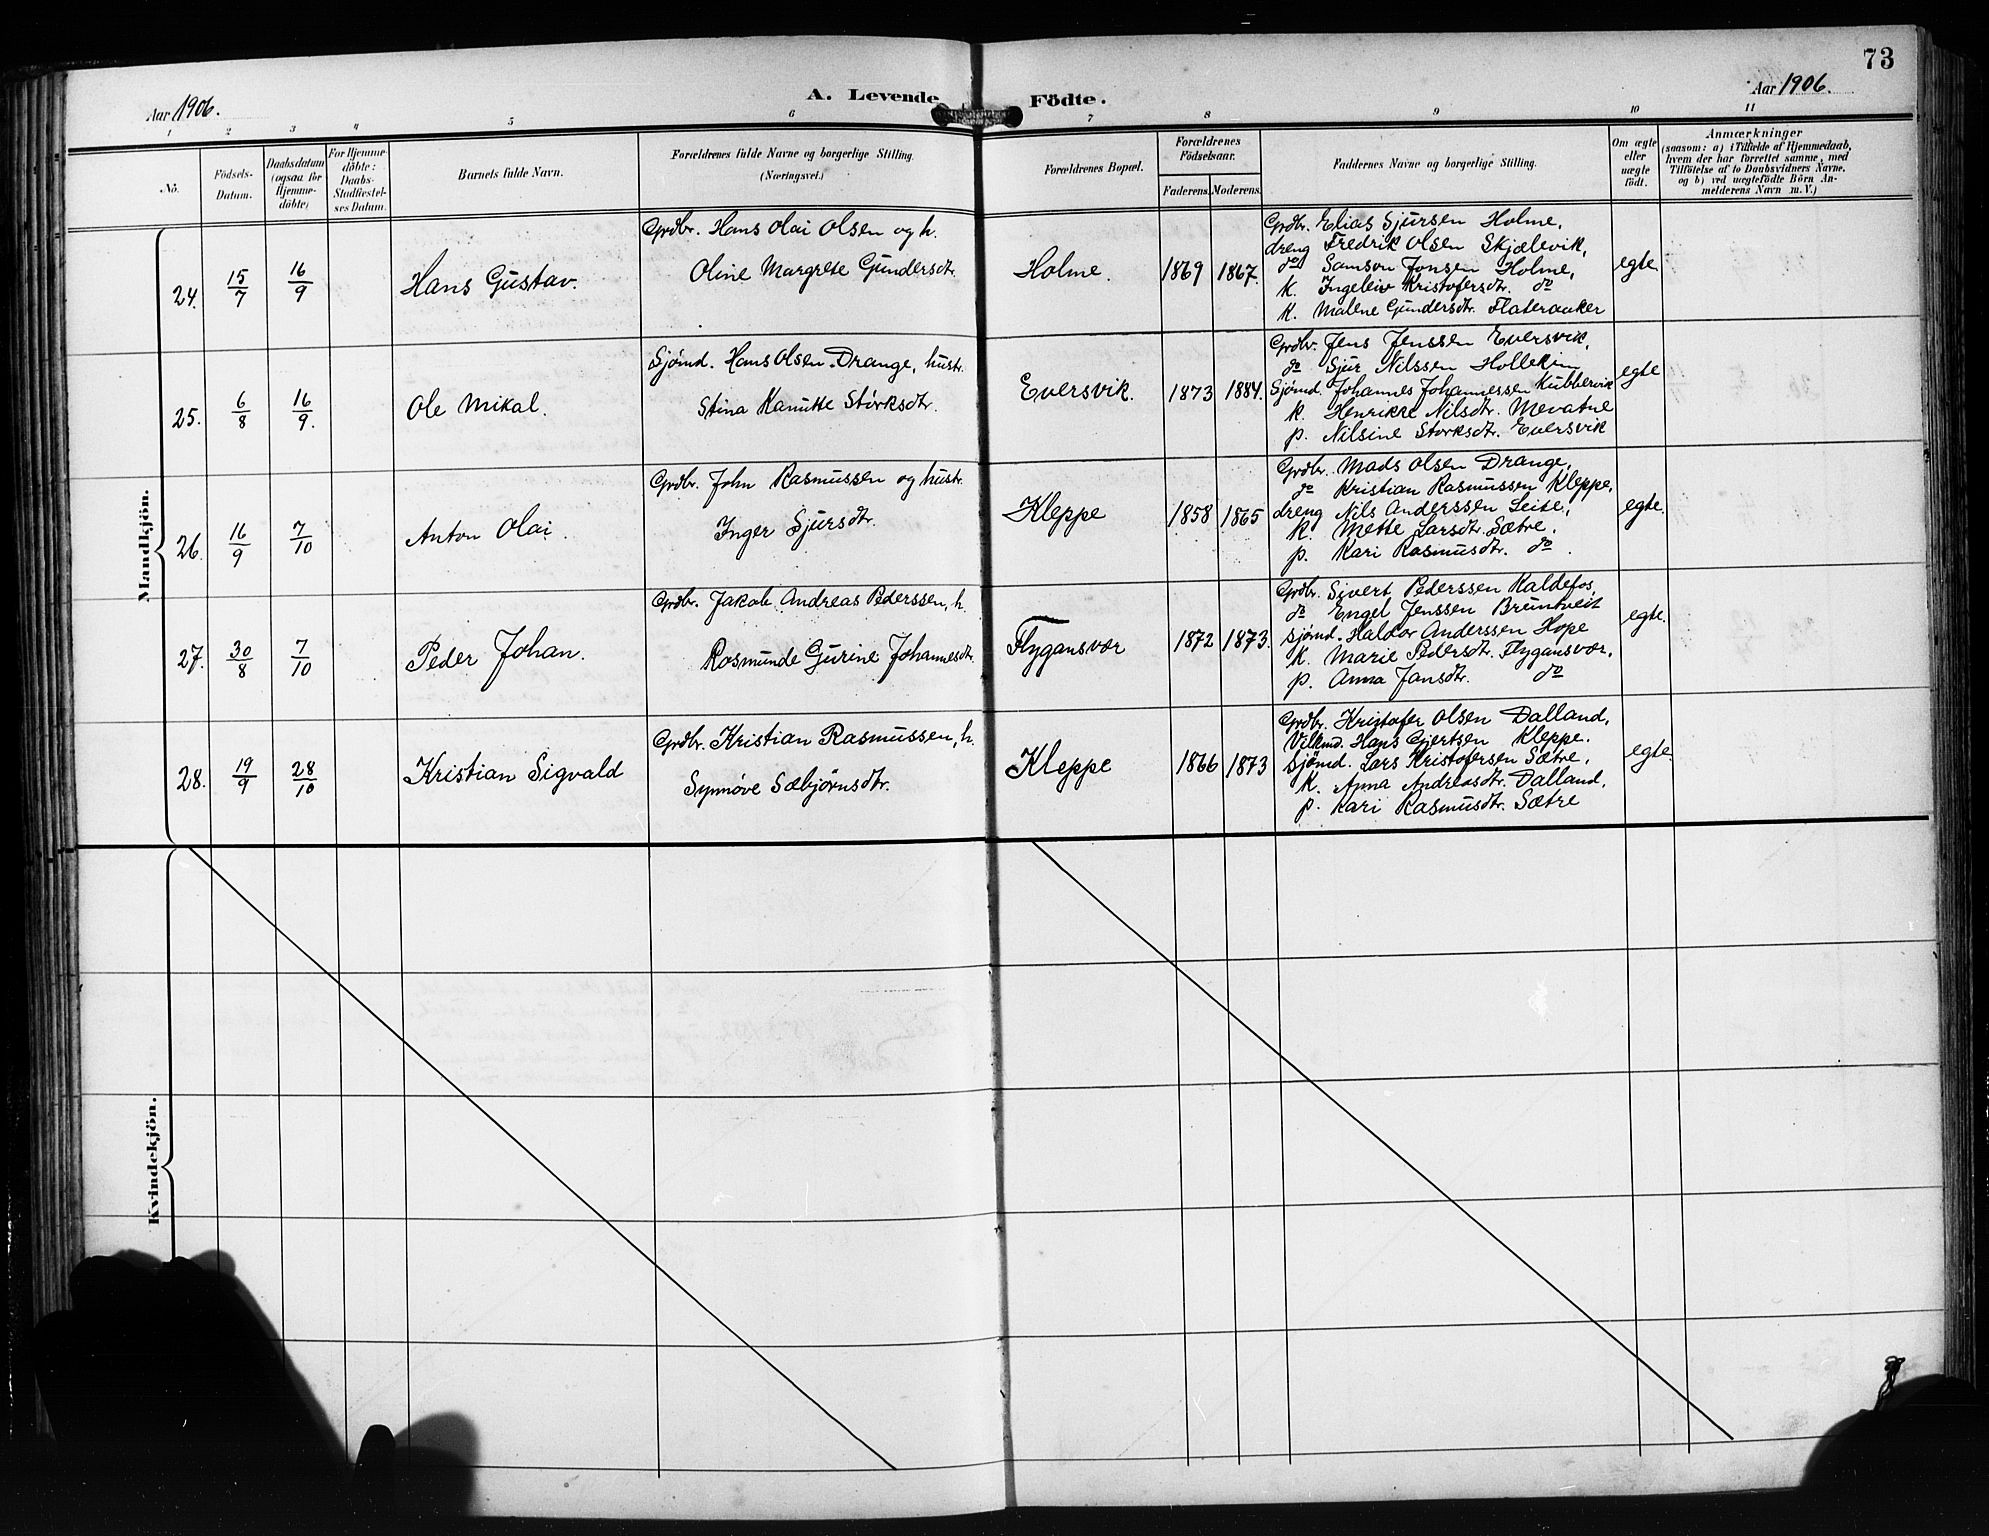 73
Aar 1906.
A. Levende Födte.
Aar 1906.
1 2 3 4 5 6 7 8 9 10 11
No.
Födsels-Datum.
Daabsdatum (ogsaa for Hjemme-döbte)
For Hjemme-döbte: Daabs-Stadfæstel-ses Datum.
Barnets fulde Navn.
Forældrenes fulde Navne og borgerlige Stilling.
(Næringsvei.)
Forældrenes Bopæl.
Forældrenes Födselsaar.
Faderens. Moderens.
Faddernes Navne og borgerlige Stilling.
Om ægte eller uægte födt.
Anmærkninger
(saasom: a) i Tilfælde af Hjemmedaab,
hvem der har forrettet samme, med
Tilföielse af to Daabsvidners Navne.
og b) ved uægtefödte Börn An-
melderens Navn m. V.)
Mandkjön.
24. 15/7 16/9 Hans Gustav.
Grdbr. Hans Olai Olsen og h.
Oline Margrete Gundersdt.
Holme. 1869 1867.
Grdbr. Elias Sjursen Holme,
dreng Fredrik Olsen Skjælevik,
do Samson Jonsen Holme,
K. Ingeleiv Kristofersdtr. do
K. Malene Gundersdtr. Flateraaker
egte.
25. 6/8 16/9. Ole Mikal.
Sjömd. Hans Olsen Drange, hustr.
Stina Kanutte Störksdtr.
Eversvik. 1873 1884.
Grdbr. Jens Jenssen Eversvik,
do Sjur Nilssen Hollekim
Sjömd. Johannes Johannessen Kubbervik
K. Henrikke Nilsdtr. Mevatne
p. Nilsine Storksdtr. Eversvik
egte
26. 16/9 7/10 Anton Olai.
Grdbr. John Rasmussen og hustr.
Inger Sjursdtr.
Kleppe 1858 1865
Grdbr. Mads Olsen Drange,
do Kristian Rasmussen Kleppe,
dreng Nils Anderssen Leite,
K. Mette Larsdtr. Sætre,
p. Kari Rasmusdtr. do.
egte.
27. 30/8 7/10 Peder Johan.
Grdbr. Jakob Andreas Pederssen, h.
Rasmunde Gurine Johannesdtr.
Flygansvær 1872 1873.
Grdbr. Sivert Pederssen Kaldefos,
do Engel Jenssen Bruntveit
Sjömd. Haldor Anderssen Hope
K. Marie Pedersdtr. Flygansvær,
p. Anna Jansdtr. do
egte.
28. 19/9 28/10 Kristian Sigvald
Grdbr. Kristian Rasmussen, h.
Synnøve Sæbjörnsdtr.
Kleppe 1866 1873
Grdbr. Kristofer Olsen Dalland,
Vilkmd. Hans Gjertsen Kleppe.
Sjömd. Lars Kristofersen Sætre,
K. Anna Andreasdtr. Dalland,
p. Kari Rasmusdtr. Sætre
egte.
Kvindekjön.